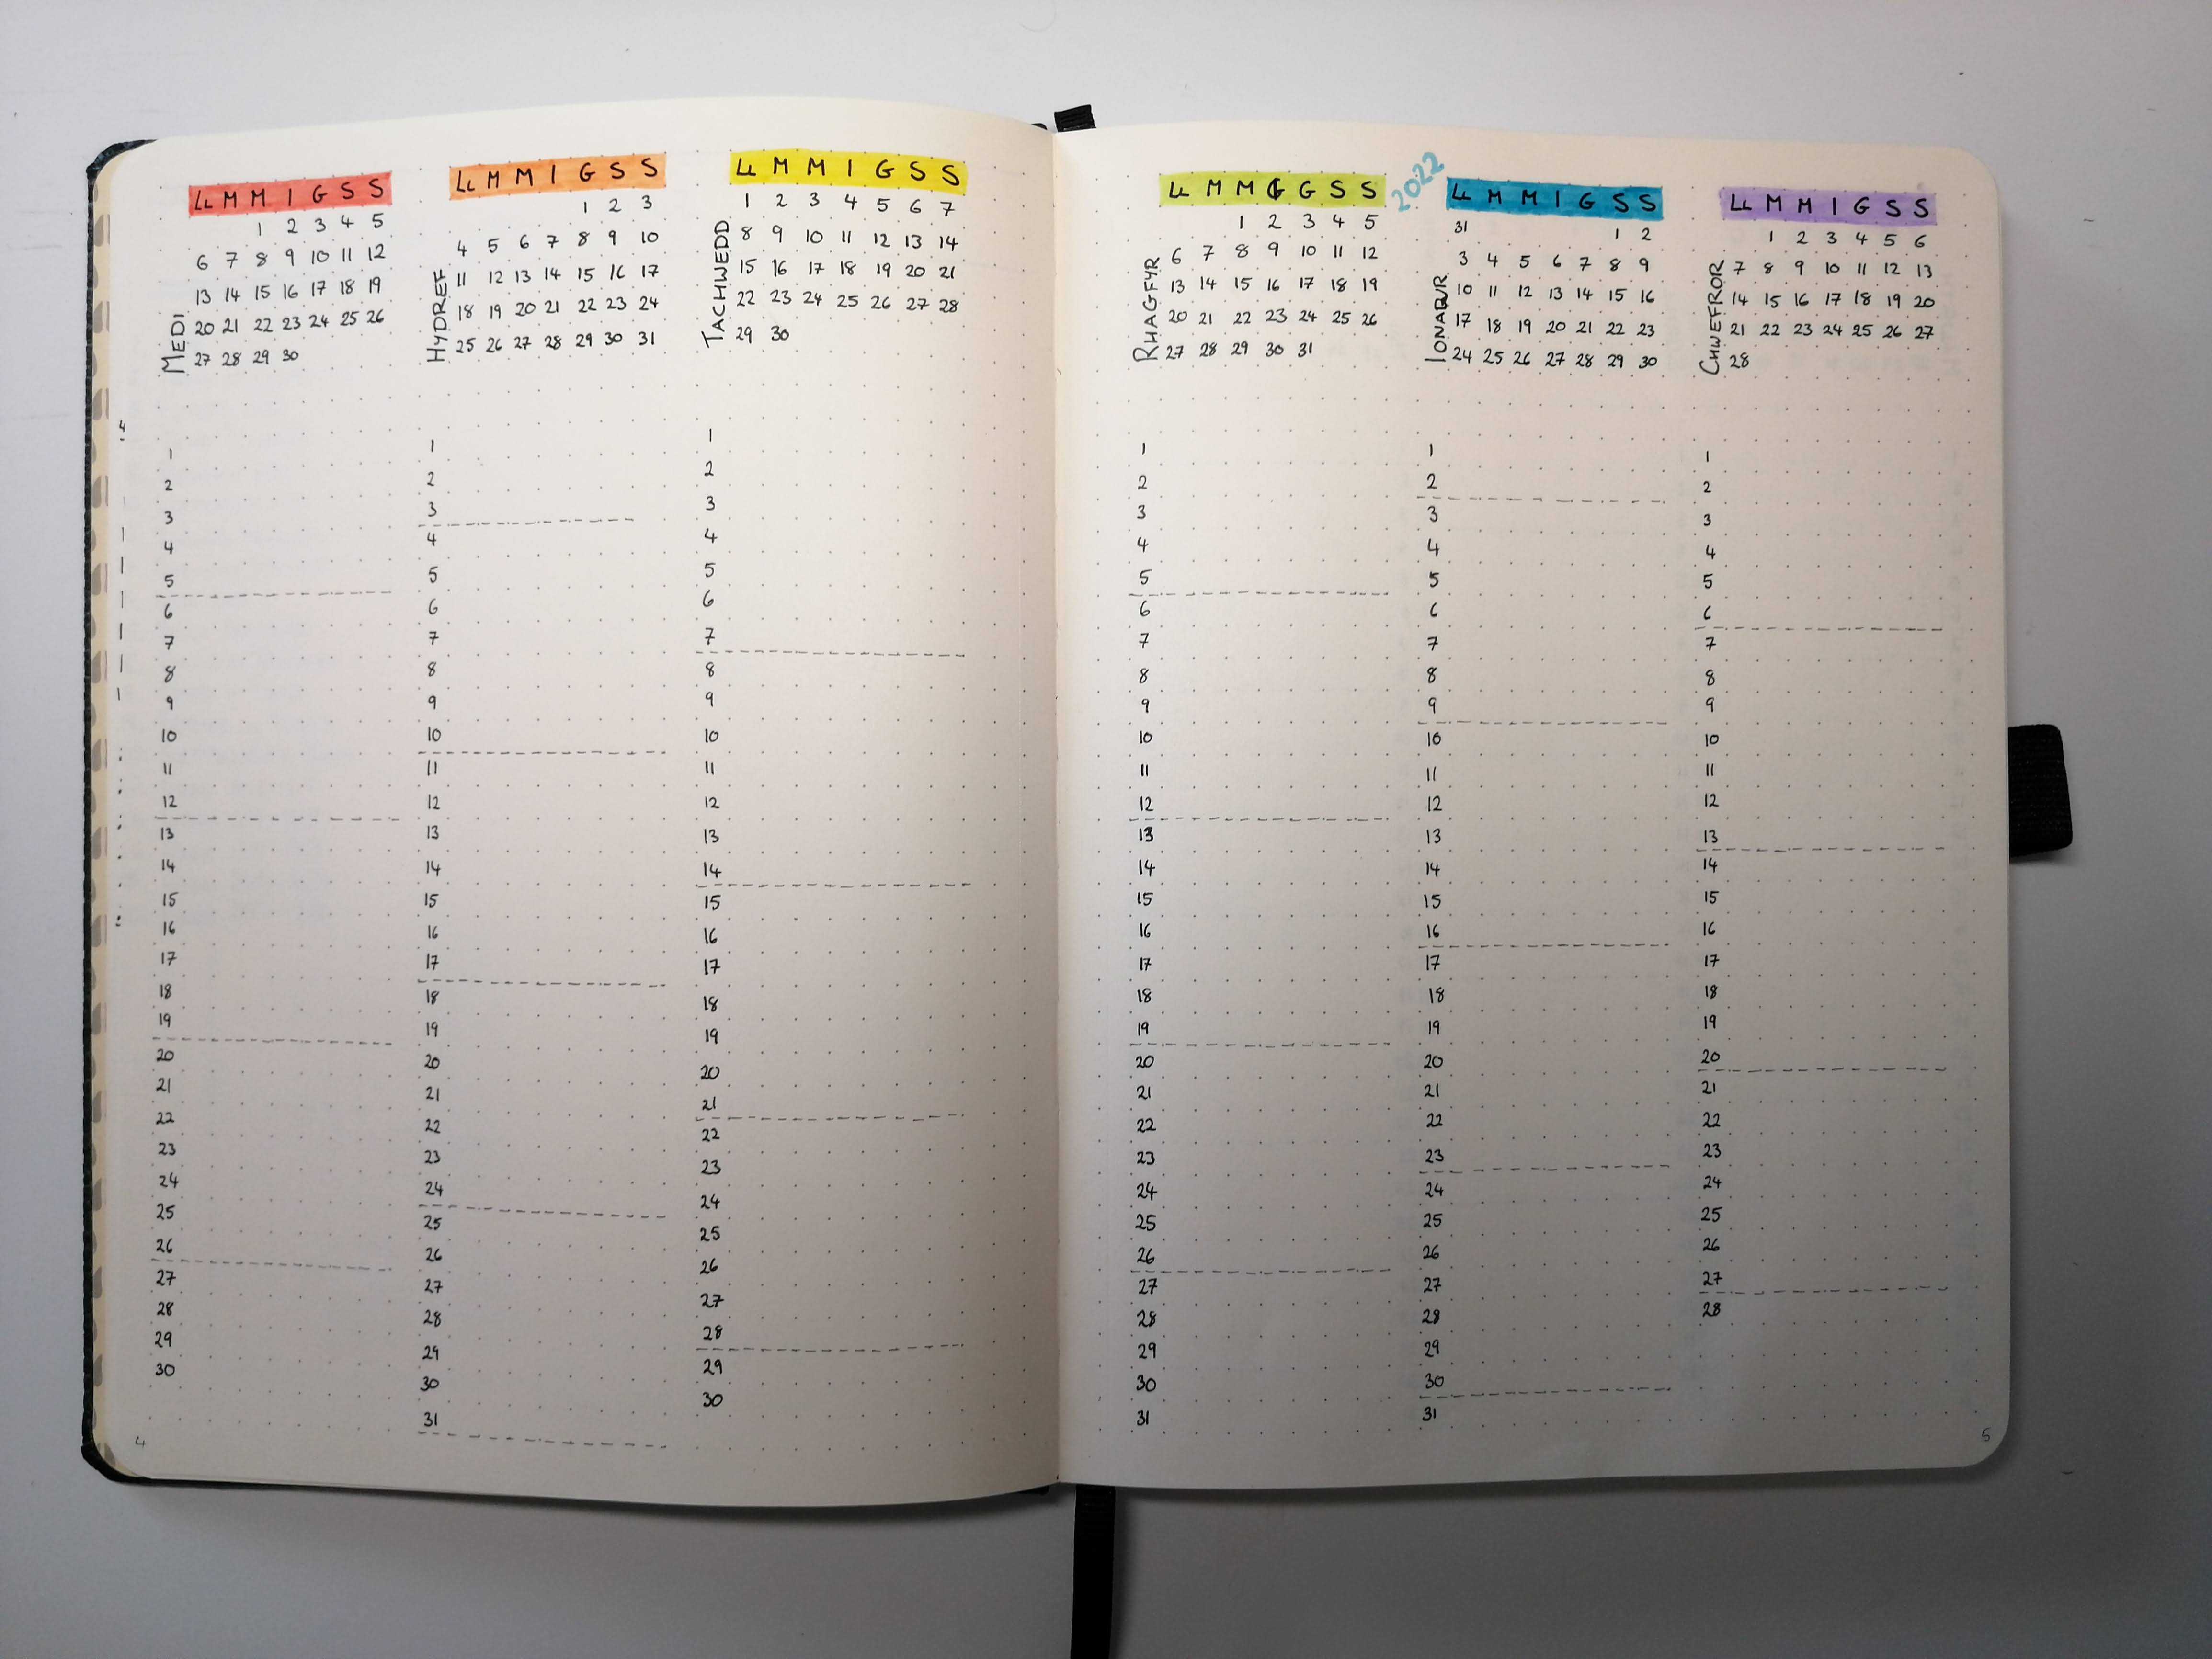 LL M M I G S S
1 2 3 4 5
6 7 8 9 10 11 12
13 14 15 16 17 18 19
20 21 22 23 24 25 26
27 28 29 30
MEDI
1
2
3
4
5
6
7
8
9
10
11
12
13
14
15
16
17
18
19
20
21
22
23
24
25
26
27
28
29
30
4
LL M M I G S S
1 2 3
4 5 6 7 8 9 10
11 12 13 14 15 16 17
18 19 20 21 22 23 24
25 26 27 28 29 30 31
HYDREF
1
2
3
4
5
6
7
8
9
10
11
12
13
14
15
16
17
18
19
20
21
22
23
24
25
26
27
28
29
30
31
LL M M I G S S
1 2 3 4 5 6 7
8 9 10 11 12 13 14
15 16 17 18 19 20 21
22 23 24 25 26 27 28
29 30
TACHWEDD
1
2
3
4
5
6
7
8
9
10
11
12
13
14
15
16
17
18
19
20
21
22
23
24
25
26
27
28
29
30
LL M M G S S
1 2 3 4 5
6 7 8 9 10 11 12
13 14 15 16 17 18 19
20 21 22 23 24 25 26
27 28 29 30 31
RHAGFYR
1
2
3
4
5
6
7
8
9
10
11
12
13
14
15
16
17
18
19
20
21
22
23
24
25
26
27
28
29
30
31
2022
LL M M I G S S
31 1 2
3 4 5 6 7 8 9
10 11 12 13 14 15 16
17 18 19 20 21 22 23
24 25 26 27 28 29 30
IONAWR
1
2
3
4
5
6
7
8
9
10
11
12
13
14
15
16
17
18
19
20
21
22
23
24
25
26
27
28
29
30
31
LL M M I G S S
1 2 3 4 5 6
7 8 9 10 11 12 13
14 15 16 17 18 19 20
21 22 23 24 25 26 27
28
CHWEFROR
1
2
3
4
5
6
7
8
9
10
11
12
13
14
15
16
17
18
19
20
21
22
23
24
25
26
27
28
5